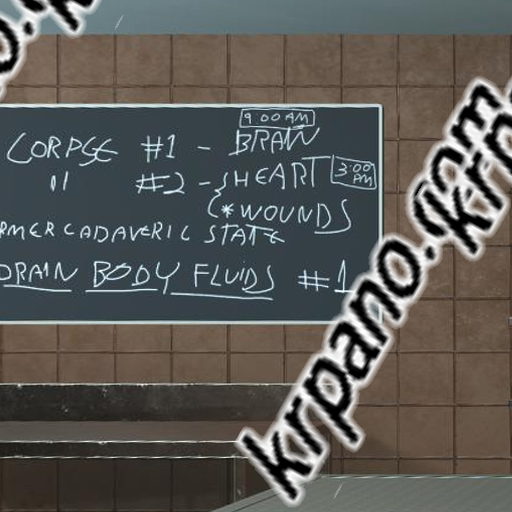 9:00 AM
CORPSE #1 - BRAIN
" #2 - { HEART 3:00 PM
(* WOUNDS
RMER CADAVERIC STATE
DRAIN BODY FLUIDS #1
krpano.com